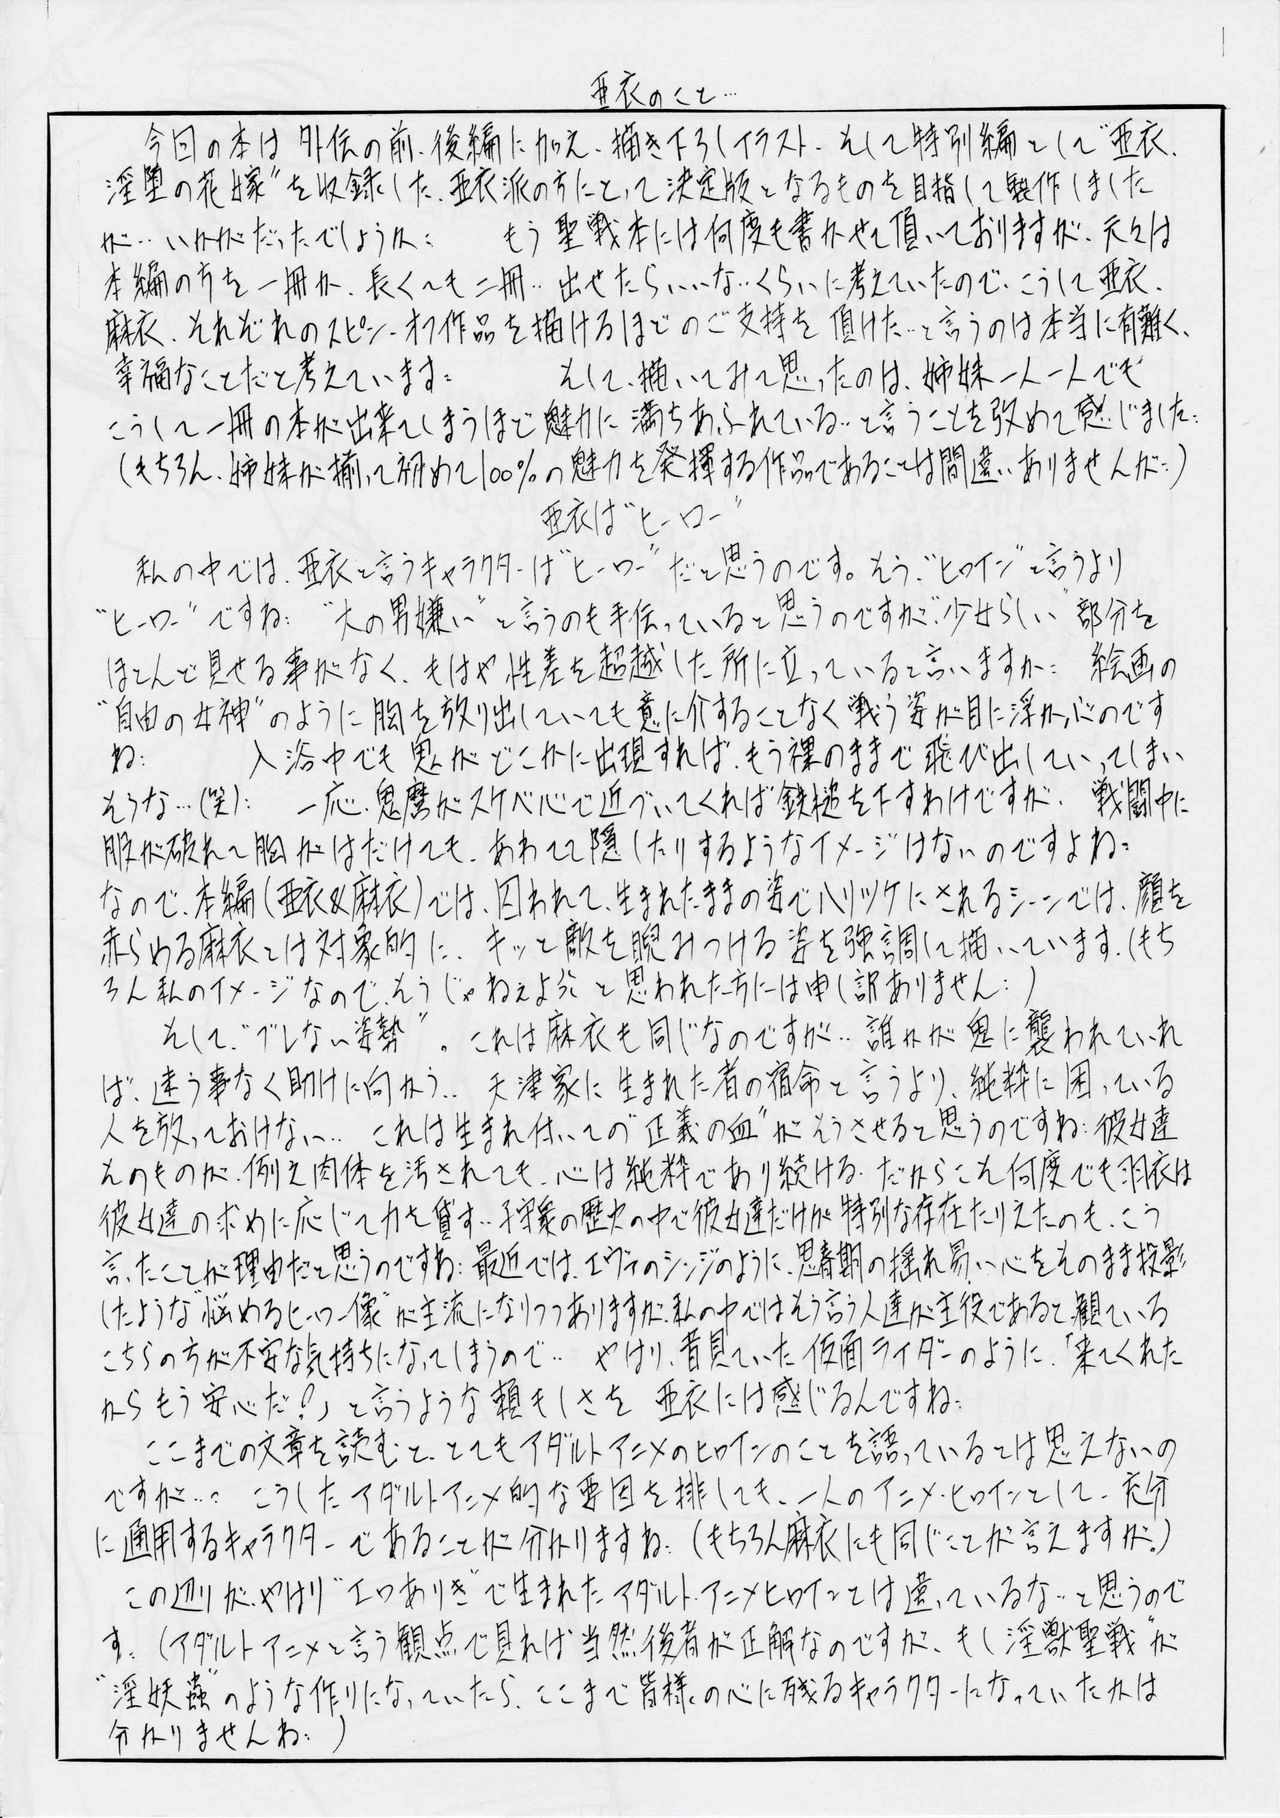 亜衣のこと…
今回の本は外伝の前、後編に加え、描き下ろしイラスト、そして特別編として“亜衣、
淫堕の花嫁”を収録した、亜衣派の方にとって決定版となるものを目指して製作しました
が…いかがだったでしょうか… もう聖戦本には何度も書かせて頂いておりますが、元々は
本編の方を一冊か、長くても二冊…出せたらいいな…くらいに考えていたので、こうして亜衣、
麻衣、それぞれのスピンオフ作品を描けるほどのご支持を頂けた…と言うのは本当に有難く、
幸福なことだと考えています… そして、描いてみて思ったのは、姉妹一人一人でも
こうして一冊の本が出来てしまうほど魅力に満ちあふれている…と言うことを改めて感じました…
(もちろん、姉妹が揃って初めて100%の魅力を発揮する作品であることは間違いありませんが…)
亜衣は“ヒーロー”
私の中では、亜衣と言うキャラクターは“ヒーロー”だと思うのです。そう、“ヒロイン”と言うより
“ヒーロー”ですね… “大の男嫌い”と言うのも手伝っていると思うのですが、“少女らしい”部分を
ほとんど見せる事がなく、もはや性差を超越した所に立っていると言いますか… 絵画の
“自由の女神”のように胸を放り出していても意に介することなく戦う姿が目に浮かぶのです
ね… 入浴中でも鬼がどこかに出現すれば、もう裸のままで飛び出していってしまい
そうな…(笑)… 一応、鬼麿がスケベ心で近づいてくれば鉄槌を下すわけですが、戦闘中に
服が破れて胸がはだけても、あわてて隠したりするようなイメージはないのですよね…
なので、本編(亜衣&麻衣)では、囚われて、生まれたままの姿でハリツケにされるシーンでは、顔を
赤らめる麻衣とは対象的に、キッと敵を睨みつける姿を強調して描いています。(もち
ろん私のイメージなので、そうじゃねぇよ と思われた方には申し訳ありません…)
そして、“ブレない姿勢”。これは麻衣も同じなのですが…誰かが鬼に襲われていれ
ば、迷う事なく助けに向かう… 天津家に生まれた者の宿命と言うより、純粋に困っている
人を放っておけない… これは生まれ付いての“正義の血”がそうさせると思うのですね…彼女達
そのものが、例え肉体を汚されても、心は純粋であり続ける、だからこそ何度でも羽衣は
彼女達の求めに応じて力を貸す…子守衆の歴史の中で彼女達だけが特別な存在たりえたのも、こう
言ったことが理由だと思うのですね…最近では、エヴァのシンジのように、思春期の揺れ易い心をそのまま投影
したような“悩めるヒーロー像”が主流になりつつありますが、私の中ではそう言う人達が主役であると、観ている
こちらの方が不安な気持ちになってしまうので… やはり、昔見ていた仮面ライダーのように、「来てくれた
からもう安心だ!」と言うような頼もしさを 亜衣には感じるんですね…
ここまでの文章を読むと、とてもアダルトアニメのヒロインのことを語っているとは思えないの
ですが…。こうしたアダルトアニメ的な要因を排しても、一人のアニメ・ヒロインとして、充分
に通用するキャラクターであることが分かりますね…(もちろん麻衣にも同じことが言えますが。)
この辺りが、やはり“エロありき”で生まれたアダルト・アニメヒロインとは違っているな…と思うので
す…(アダルトアニメと言う観点で見れば当然後者が正解なのですが、もし“淫獣聖戦”が
“淫妖蟲”のような作りになっていたら、ここまで皆様の心に残るキャラクターになっていたかは
分かりませんね…)